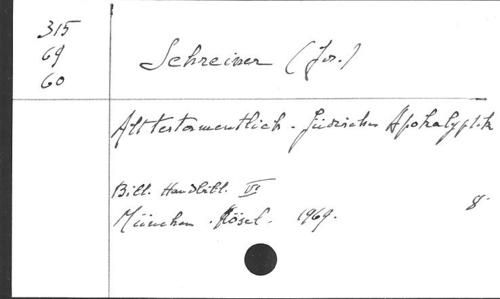 315
69
60
Schreiner (Jos.)
Alttestamentlich-Jüdische Apokalyptik
Bibl. Handbibl. VI
München. Kösel. 1969.
8°